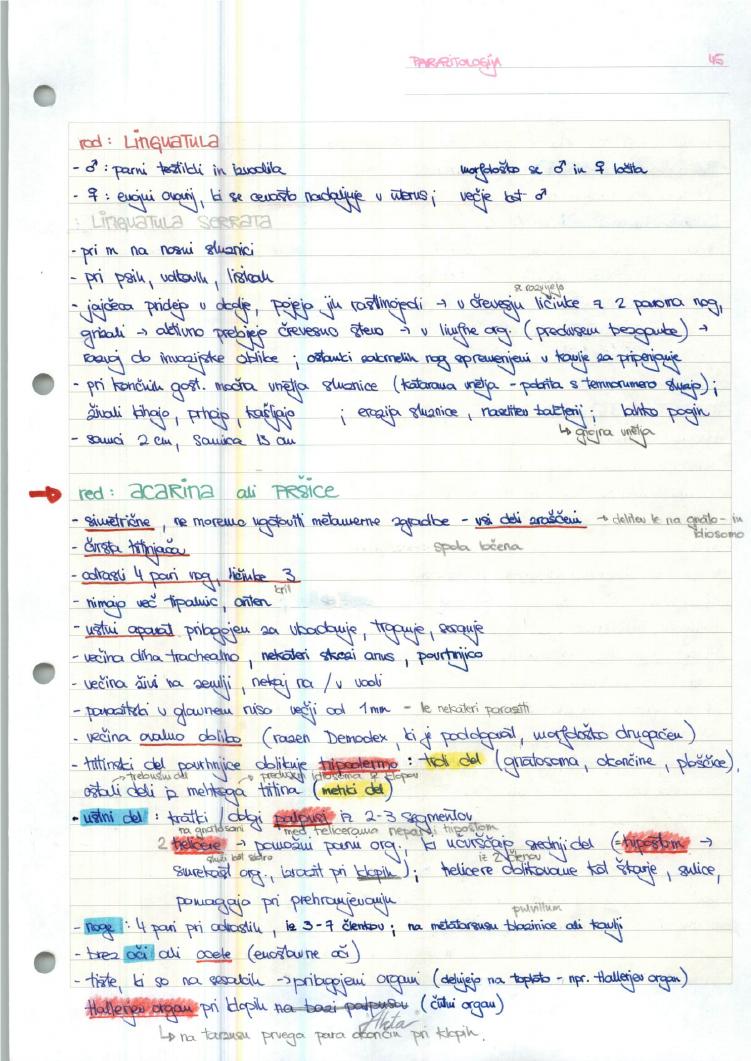 PARAZITOLOGIJA 45
rod: LINGUATULA
- ♂: parni testikli in izvodila morfološko se ♂ in ♀ ločita
- ♀: enojni ovarij, ki se cevasto nadaljuje v uterus; večje kot ♂
: LINGUATULA SERRATA
- pri m na nosni sluznici
- pri psih, volkovih, lisicah
se razvijejo
- jajčeca pridejo v okolje, pojejo jih rastlinojedi → v črevesju ličinke z 2 paroma nog,
grizali → aktivno prebijejo črevesno steno → v limfne org. (predvsem bezgavke) →
razvoj do invazijske oblike; ostanki zakrnelih nog spremenjeni v kavlje za pripenjanje
- pri končnih gost. močna vnetja sluznice (kataralna vnetja - pokrita s temnorumeno sluzjo);
živali kihajo, prhajo, kašljajo ; erozija sluznice, naselitev bakterij; lahko pogin
↳ gnojna vnetja
- samci 2 cm, samica 13 cm
→ red: ACARINA ali PRŠICE
- simetrične, ne moremo ugotoviti metamerne zgradbe - vsi deli zraščeni → delitev le na gnato- in
idiosomo
- čvrsta hitinjača spola ločena
- odrasli 4 pari nog, ličinke 3
kril
- nimajo več tipalnic, anten
- ustni aparat prilagojen za vbadanje, trganje, sesanje
- večina diha trachealno, nekateri skozi anus, površinjico
- večina živi na zemlji, nekaj na / v vodi
- parazitski v glavnem niso večji od 1mm - le nekateri paraziti
- večina ovalno obliko (razen Demodex, ki je podolgovat, morfološko drugačen)
- hitinski del površnjice oblikuje hipodermo: trdi del (gnatosoma, okončine, ploščice),
→ trebušni del → predvsem idiosoma iz klopov
ostali deli iz mehkega hitina (mehki del)
- ustni del: kratki / dolgi palpusi iz 2-3 segmentov
na gnatosomi med helicerama neparni hipostom
2 helicere → pomožni parni org., ki učvrščajo srednji del (= hipostom →
služi kot sidro iz 2 členov
simetričast org., izrazit pri klopih); helicere oblikovane kot škarje, sulice,
pomagajo pri prehranjevanju
pulvillum
- noge: 4 pari pri odraslih, iz 3-7 členkov; na metatarsusu blazinice ali kavlji
- brez oči ali ocele (enostavne oči)
- tiste, ki so na sesalcih → prilagojeni organi (delujejo na toploto - npr. Hallerjev organ)
Hallerjev organ pri klopih na bazi palpusov (čutni organ)
↳ na tarzusu prvega para okončin pri klopih.